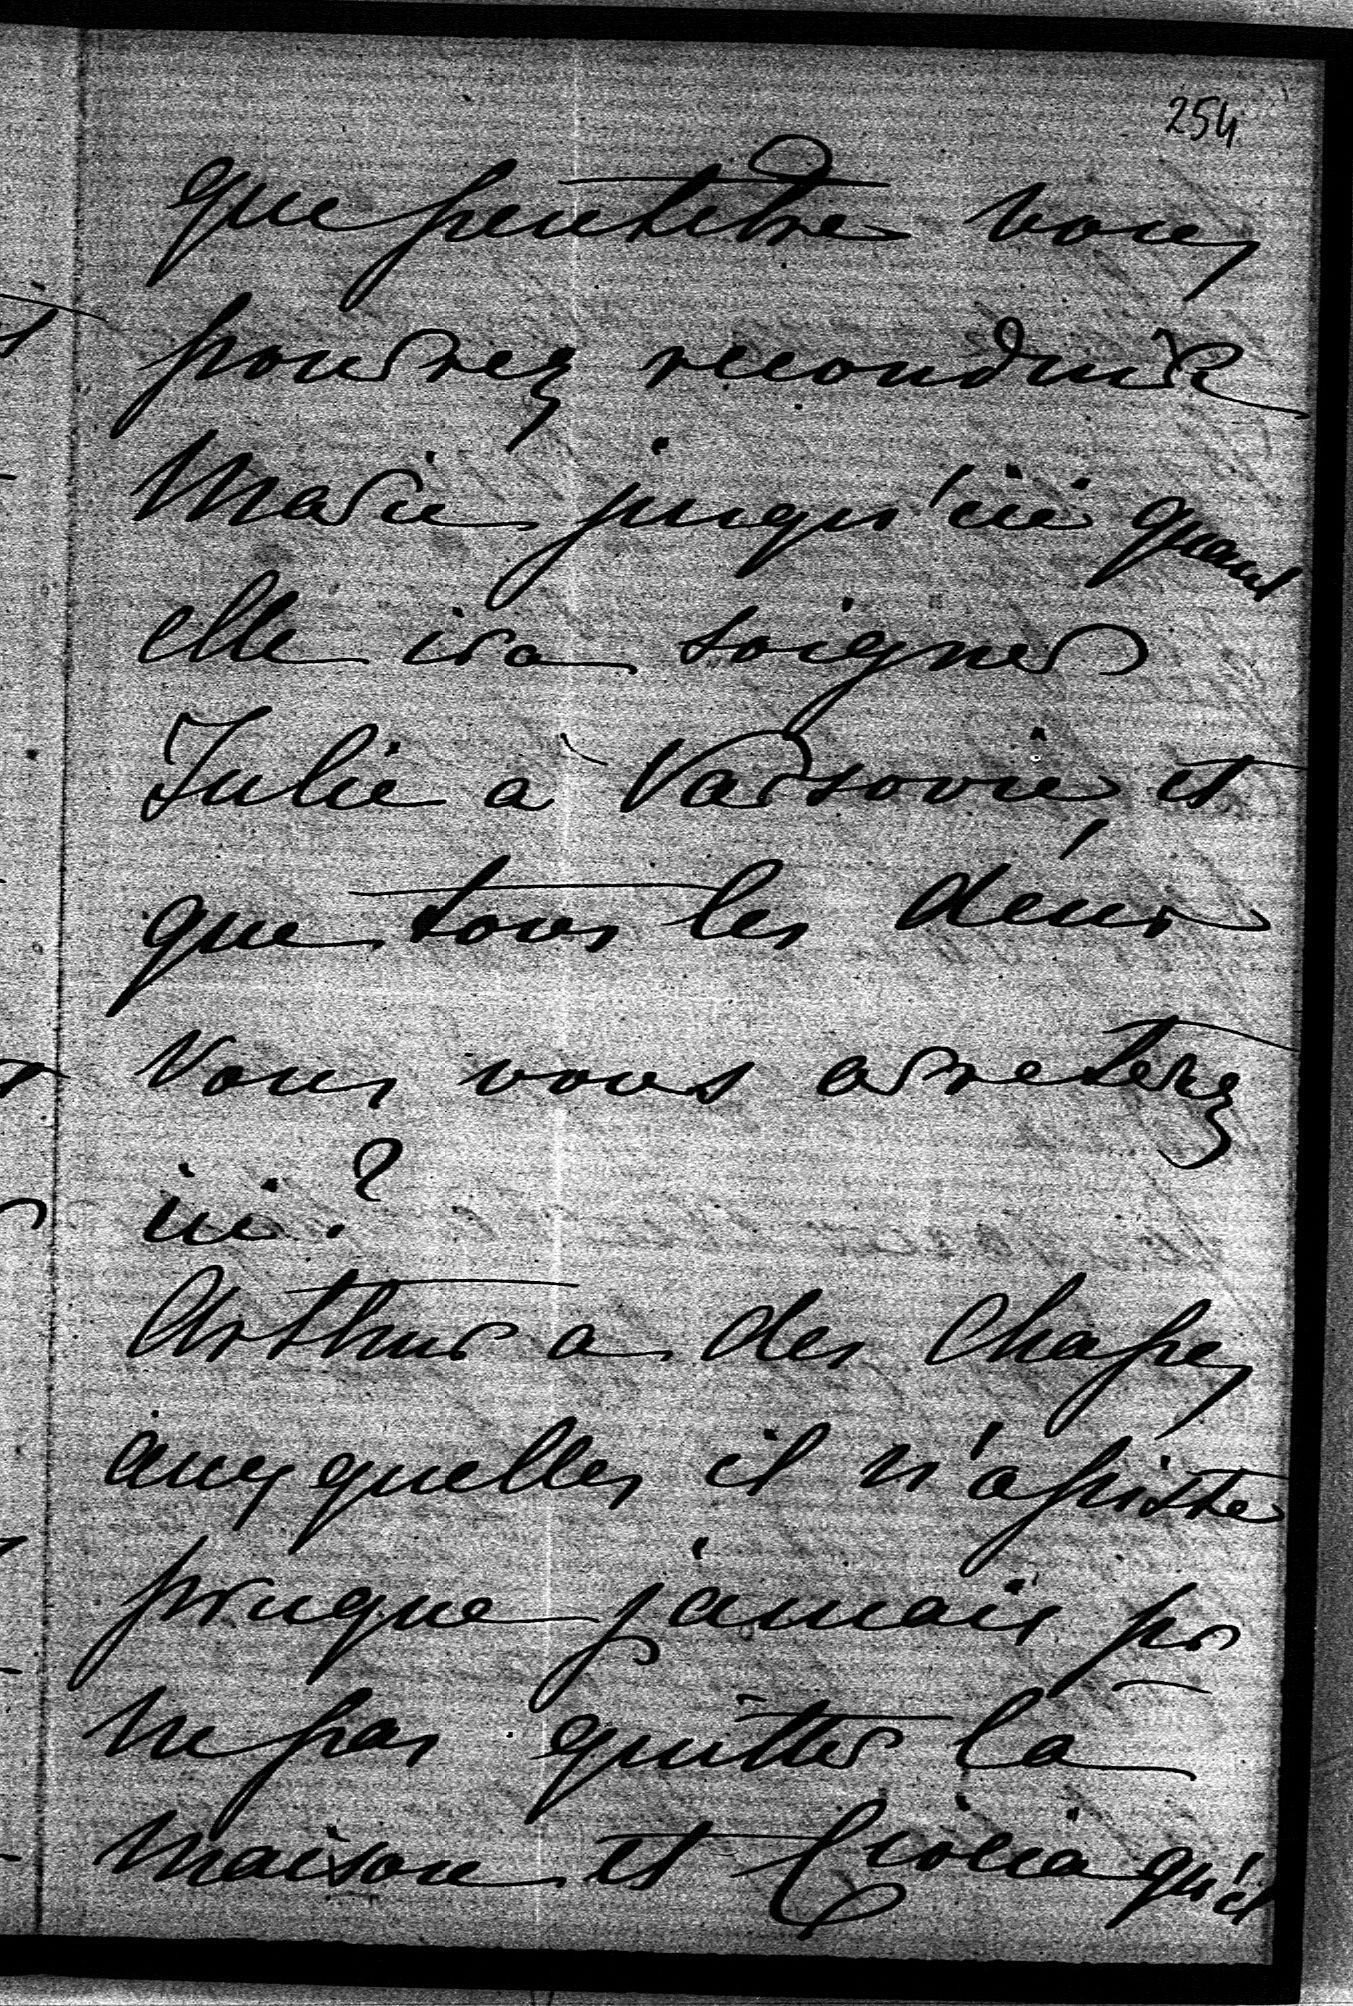 254
que peutêtre vous
pourrez reconduire
Marie jusqu'ici quand
elle ira soigner
Julie à Varsovie et
que tous les deux
Vous vous arreterez
ici?
Arthur a des Chasses
auxquelles il n'assiste
presque jamais pr
ne pas quitter la
maison et qu'il